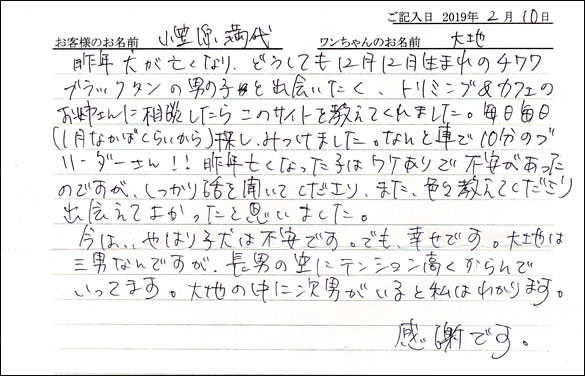 ご記入日 2019年 2月 10日
お客様のお名前 小笠原満代 ワンちゃんのお名前 大地
昨年犬が亡くなり、どうしても12月12日生まれのチワワ
ブラックタンの男の子と出会いたく、トリミング&カフェの
お姉さんに相談したらこのサイトを教えてくれました。毎日毎日
(1月なかばくらいから)探し、みつけました。なんと車で10分のブ
リーダーさん!!昨年亡くなった子はワケありで不安があった
のですが、しっかり話を聞いてくださり、また、色々教えてくださり
出会えてよかったと思いました。
今は、、やはり子犬は不安です。でも、幸せです。大地は
三男なんですが、長男の空にテンション高くからんで
いってます。大地の中に次男がいると私はわかります。
感謝です。